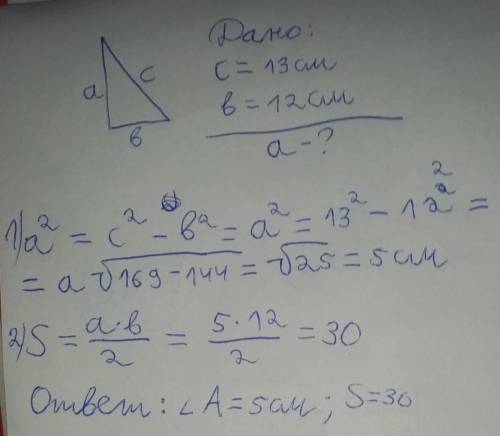 Дано:
a c c = 13 см
в в = 12 см
a - ?
1) a² = c² - в² = a² = 13² - 12² =
= a √169-144 = √25 = 5 см
2) S = a·в/2 = 5·12/2 = 30
Ответ: ∠A = 5 см; S = 30